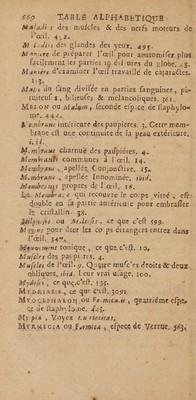 660 TABLE ALPHABETIQUE
Maladies des muscles & des nerfs moteurs de
l'œil. 42.
Maladies des glandes des yeux. 495.
Maniere de préparer l'œil pour anatomiser plus
facilement les parties du globe. 43.
Maniere d'examiner l'œil travaillé de cataractes.
143.
Masse du sang divisée en parties sanguines, pi-
tuiteuses, bilieuses & mélancoliques. 361.
MELON ou Malum, seconde espece de staphylo-
me. 442.
Membrane intérieure des paupieres. 7. Cette mem-
brane est une continuité de la peau extérieure.
ibid.
Membrane charnue des paupieres. 4.
Membranes communes à l'œil. 14.
Membrane, appellée Conjonctive. 15.
Membrane, appellée Innominée, ibid.
Membranes propres de l'œil. 16.
La Membrane qui recouvre le corps vitré, est
double en sa partie antérieure pour embrasser
le cristallin. 38.
ou Milesis, ce que c'est 599.
Moyens pour ôter les corps étrangers entrez dans
l'œil. 347.
Mouvement tonique, ce que c'est. 10.
Muscles des paupieres. 4.
Muscles de l'œil. 9. Quatre muscles droits & deux
obliques, ibid. Leur vrai usage. 100.
Mydesis, ce que c'est. 535.
MYDRIASIS, ce que c'est. 309.
MYOCEPHALON ou Formicans, quatriéme espe-
ce de staphylome. 443.
Myopia, Voyez
MYRMECIA ou Formica, espece de Verrue. 563.